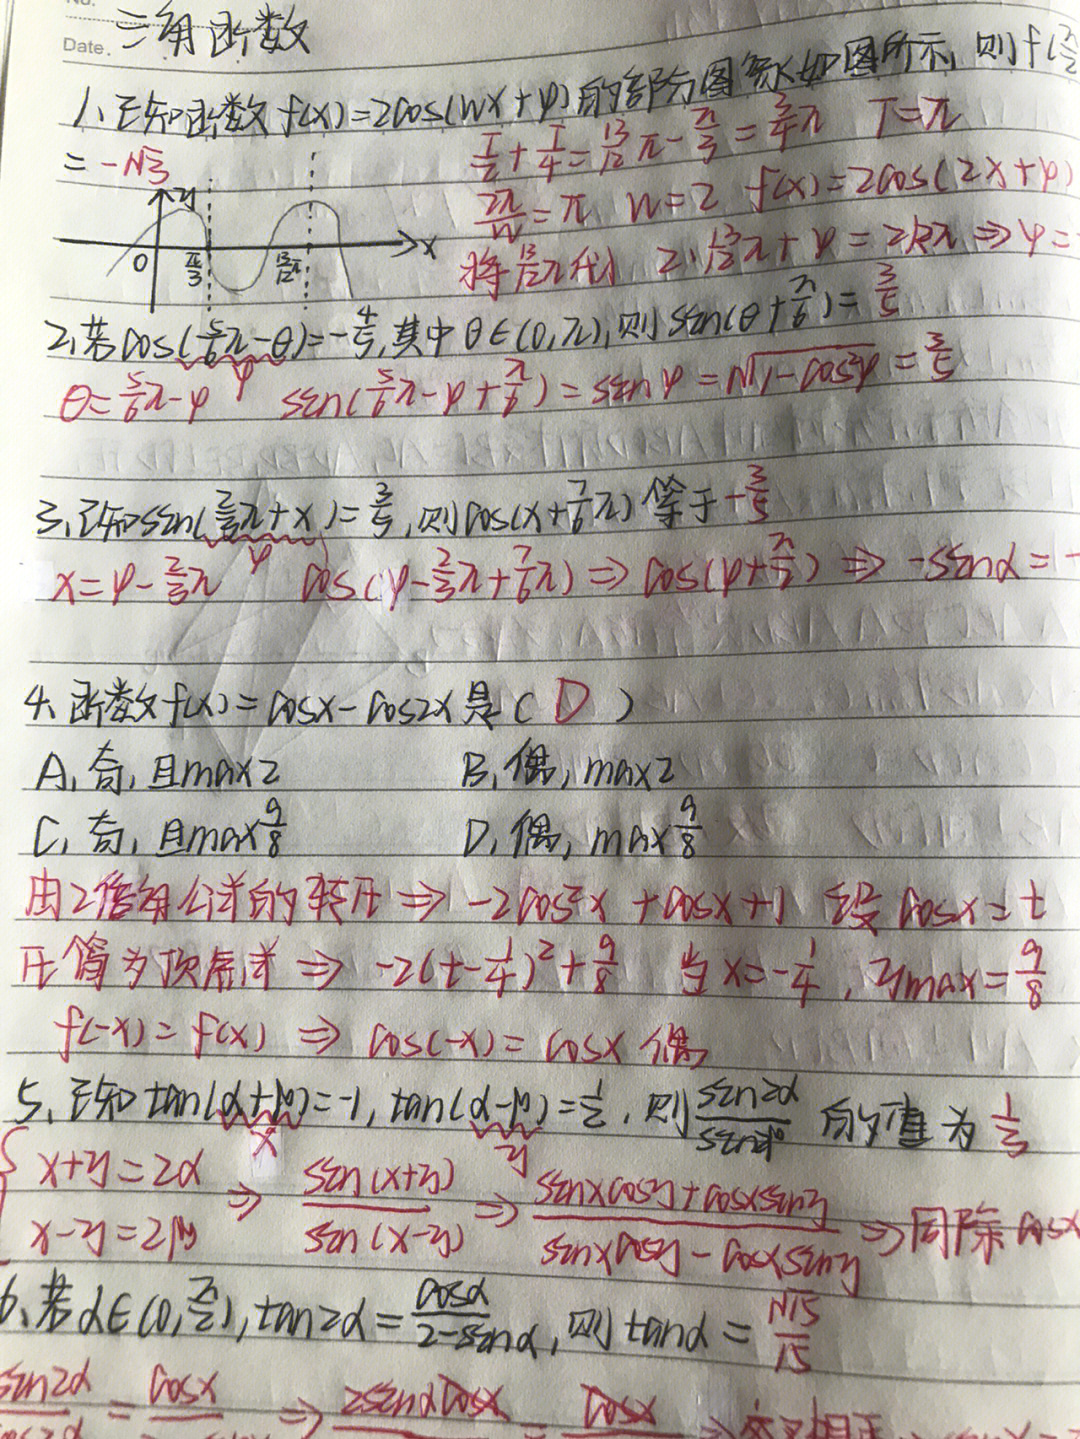 No.
Date. 三角函数
1、已知函数 f(x)=2cos(wx+φ)的部分图象如图所示, 则f(π/2
= -√3
T/2+T/4=13/12π-π/3=3/4π T=π
2π/w=π w=2 f(x)=2cos(2x+φ)
将13/12π代入 2·13/12π+φ=2kπ⇒φ=-
y
x
0 π/3 13/12π
2、若cos(5/6π-θ)=-4/5,其中θ∈(0,π),则sin(θ+π/6)=3/5
φ
θ=5/6π-φ sin(5/6π-φ+π/6)=sinφ=√1-cos²φ=3/5
3、已知sin(2/3π+x)=3/5,则cos(x+7/6π)等于-3/5
φ
x=φ-2/3π cos(φ-2/3π+7/6π)⇒cos(φ+π/2)⇒-sinα=-
4、函数f(x)=cosx-cos2x是( D )
A、奇,且max2 B、偶,max2
C、奇,且max9/8 D、偶,max9/8
由2倍角公式的转化⇒-2cos²x+cosx+1 设cosx=t
化简为顶点式⇒-2(t-1/4)²+9/8 当x=-1/4,ymax=9/8
f(-x)=f(x)⇒cos(-x)=cosx 偶
5、已知tan(α+β)=-1,tan(α-β)=1/2,则sin2α/sin2β的值为1/3
x y
{x+y=2α
x-y=2β ⇒ sin(x+y)/sin(x-y) ⇒ sinxcosy+cosxsiny/sinxcosy-cosxsiny ⇒同除cosx
6、若α∈(0,π/2),tan2α=cosα/2-sinα,则tanα=√15/15
sin2α/cos2α=cosx ⇒ 2sinαcosx = cosx ⇒交叉相乘